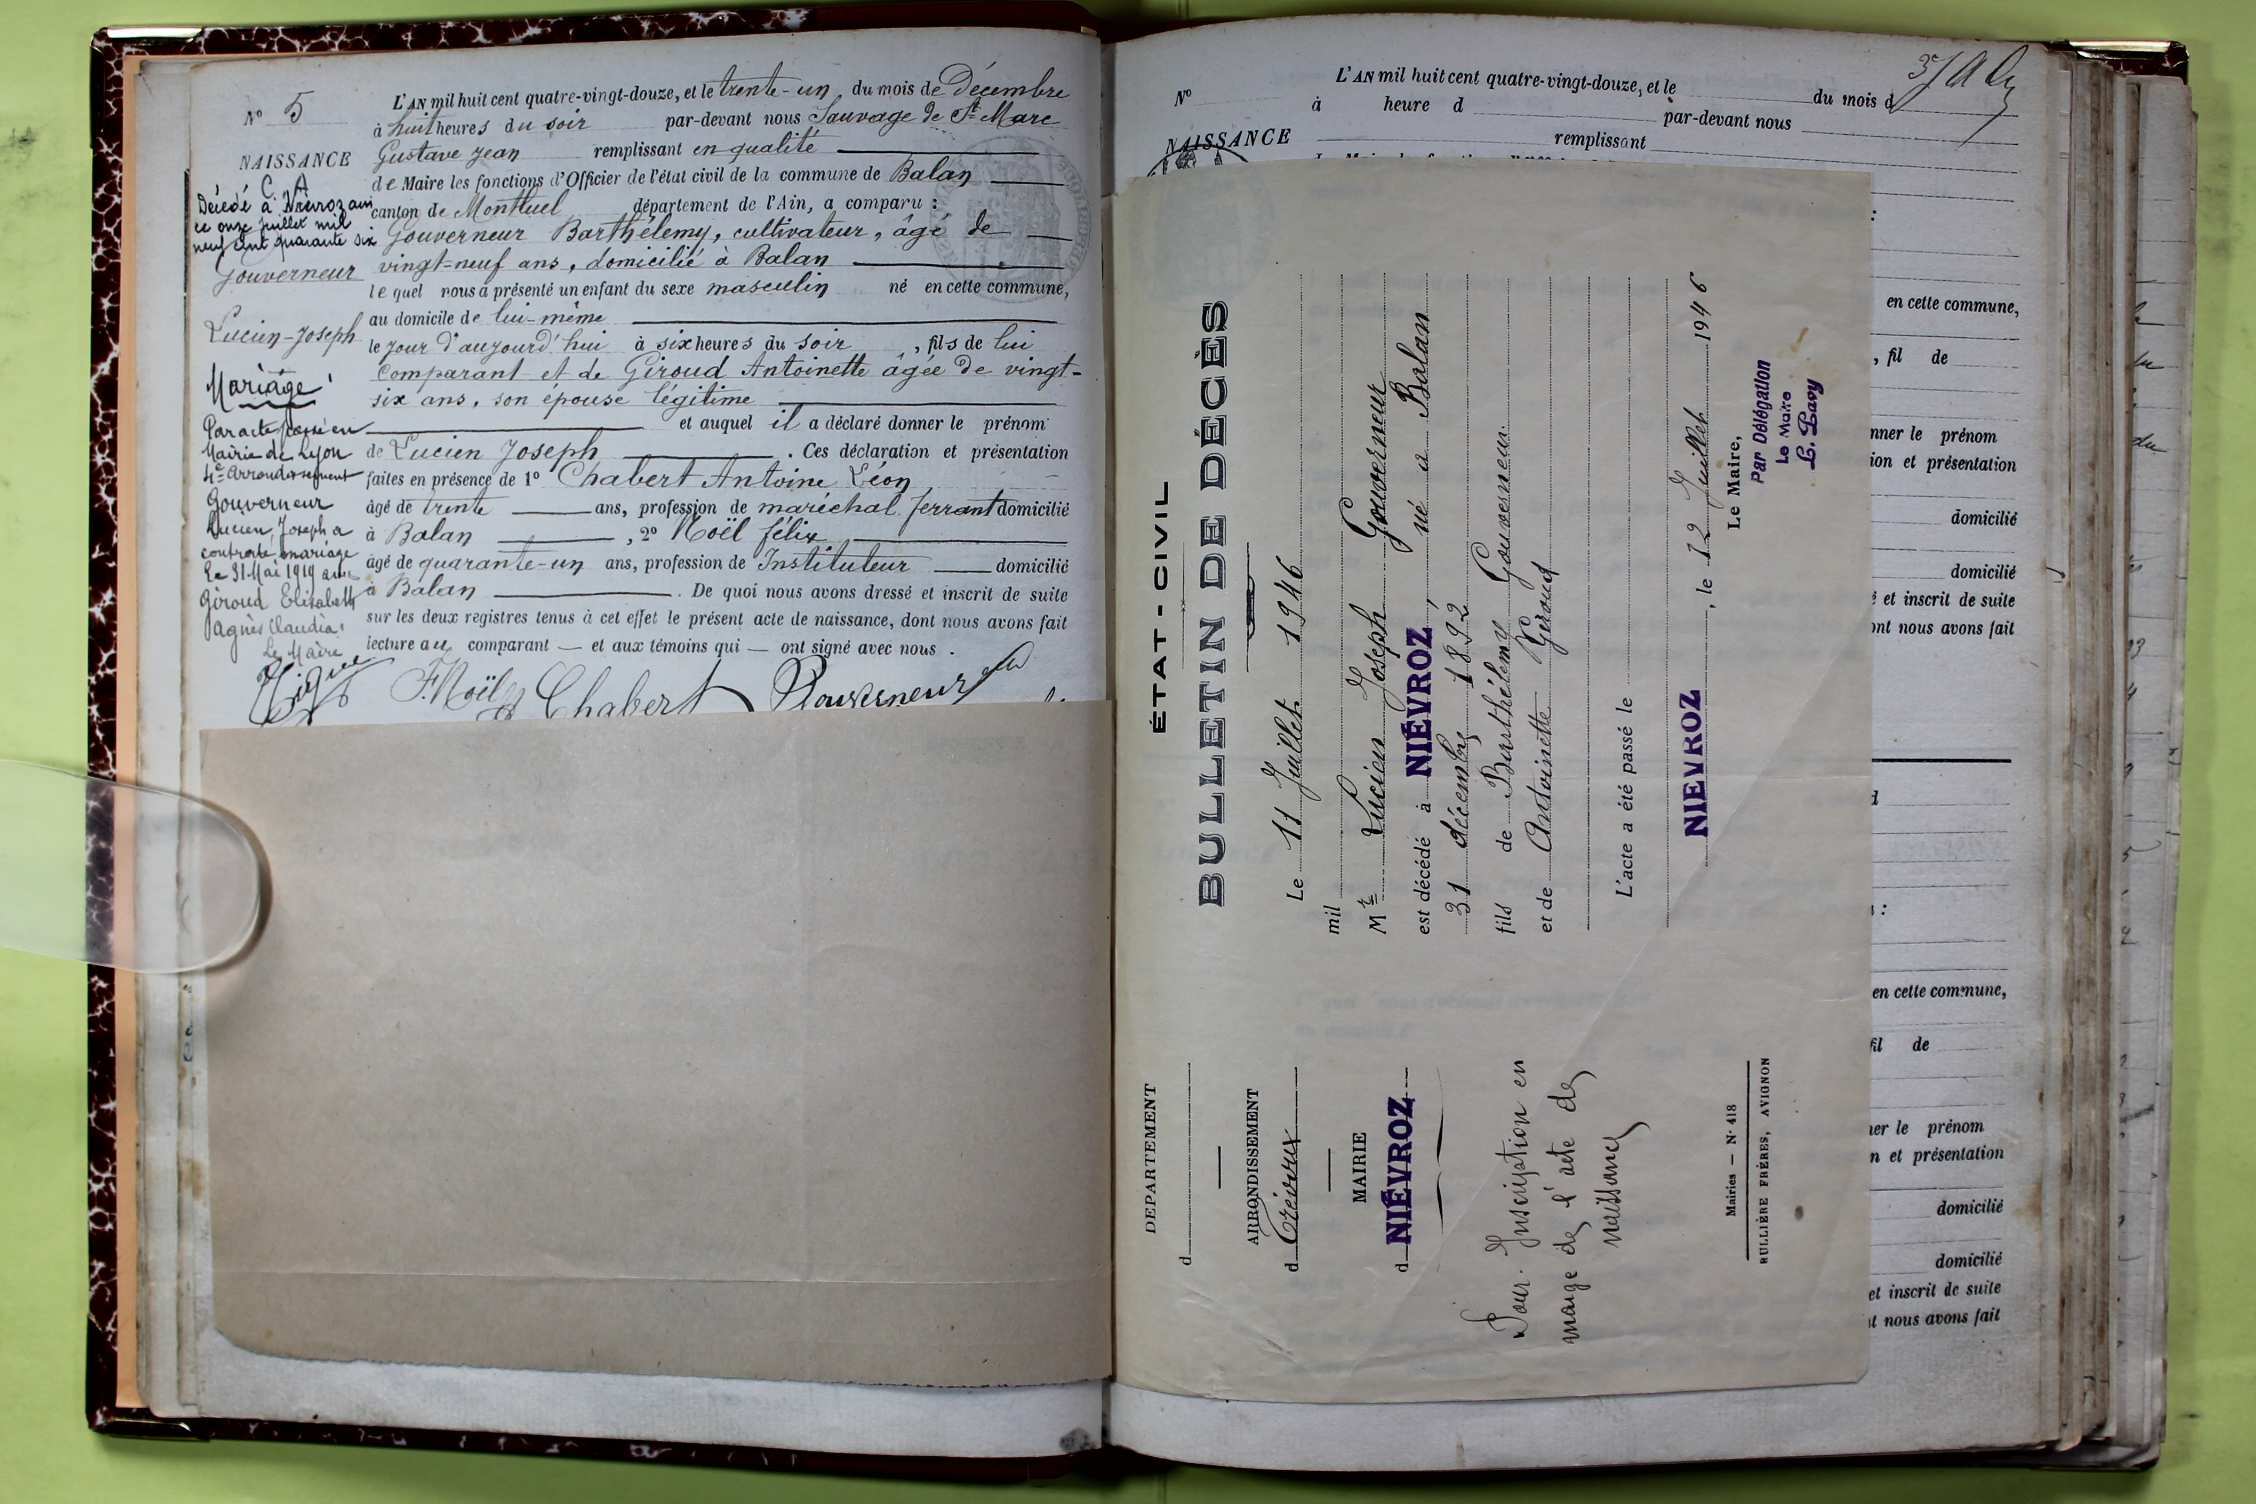 N° 5
NAISSANCE
L'AN mil huit cent quatre-vingt-douze, et le trente-un du mois de Décembre
à huit heures du soir par-devant nous Sauvage de St Marc
Gustave Jean remplissant en qualité
de Maire les fonctions d'Officier de l'état civil de la commune de Balan
canton de Montluel département de l'Ain, a comparu :
Gouverneur Barthélemy, cultivateur, âgé de
vingt-neuf ans, domicilié à Balan
lequel nous a présenté un enfant du sexe masculin né en cette commune,
au domicile de lui-même
le jour d'aujourd'hui à six heures du soir, fils de lui
comparant et de Giroud Antoinette âgée de vingt-
six ans, son épouse légitime
et auquel il a déclaré donner le prénom
de Lucien Joseph. Ces déclaration et présentation
faites en présence de 1° Chabert Antoine Léon
âgé de trente ans, profession de maréchal ferrant domicilié
à Balan, 2° Noël félix
âgé de quarante-un ans, profession de Instituteur domicilié
à Balan. De quoi nous avons dressé et inscrit de suite
sur les deux registres tenus à cet effet le présent acte de naissance, dont nous avons fait
lecture au comparant — et aux témoins qui — ont signé avec nous.
F. Noël Chabert Gouverneur
Décédé à
ce onze juillet mil
neuf cent quarante six
Gouverneur
Lucien-Joseph
Mariage
Par acte passé en
Mairie de Lyon
4e arrondissement
Gouverneur
Lucien, Joseph a
contracté mariage
le 31 Mai 1919 avec
Giroud Elisabeth
Agnès Claudia.
Le Maire
N°
NAISSANCE
L'AN mil huit cent quatre-vingt-douze, et le du mois d
à heure d par-devant nous
remplissant
:
en cette commune,
, fil de
nner le prénom
ion et présentation
domicilié
domicilié
et inscrit de suite
ont nous avons fait
d
:
en cette commune,
fil de
ner le prénom
n et présentation
domicilié
domicilié
et inscrit de suite
t nous avons fait
DEPARTEMENT
d
ARRONDISSEMENT
d Trévoux
MAIRIE
d NIÉVROZ
Pour Inscription en
marge de l'acte de
naissance
Mairies — N° 418
RULLIÈRE FRÈRES, AVIGNON
ÉTAT-CIVIL
BULLETIN DE DÉCÈS
Le 11 Juillet 1946
mil
Mr Lucien Joseph Gouverneur
est décédé à NIÉVROZ, né à Balan
31 décembre 1892
fils de Barthélemy Gouverneur
et de Antoinette Giroud
L'acte a été passé le
NIEVROZ, le 12 Juillet 1946
Le Maire,
Par Délégation
Le Maire
L. Pavy